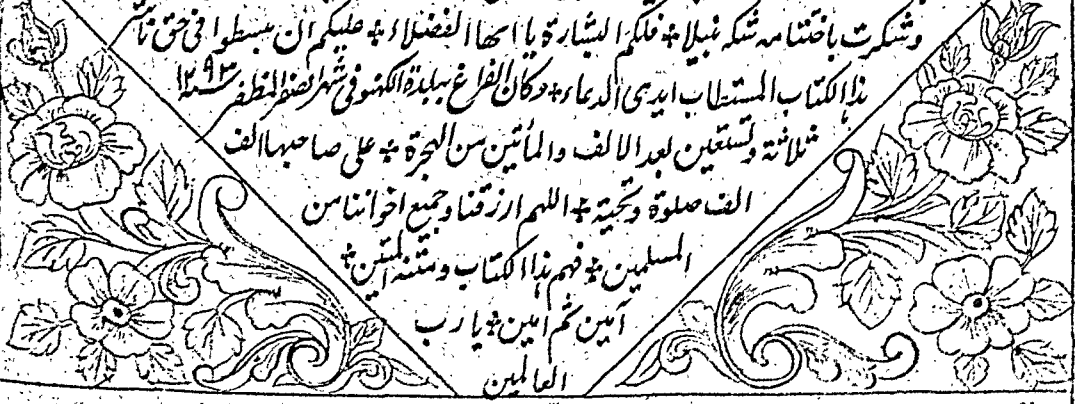 وشكرت باختتامه شكرا جميلا ÷ فلكم البشارة يا ايها الفضلاء ÷ عليكم ان يبسطوا فى حق ناشر
هذا الكتاب المستطاب ايدى الدعاء ÷ وكان الفراغ ببلدة الكهنو فى شهر الصفر المظفر سنة ١٢٩٣
ثلاثة وتسعين بعد الالف والمأتين من الهجرة ÷ على صاحبها الف
الف صلوة وتحية ÷ اللهم ارزقنا وجميع اخواننا من
المسلمين ÷ فهم هذا الكتاب ومتنه المتين ÷
آمين ثم آمين ÷ يا رب
العالمين